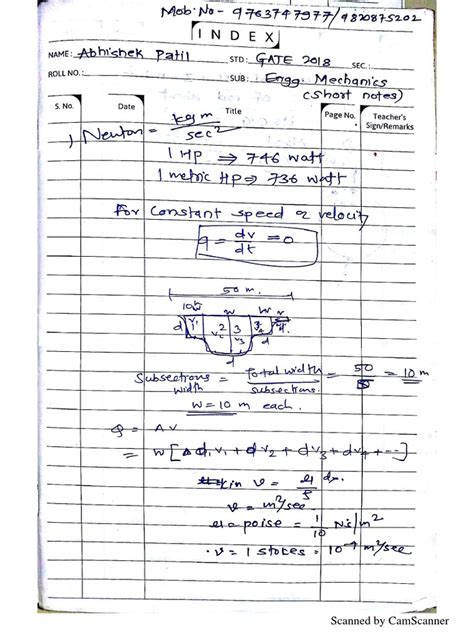 Mob.No- 9763747977/9820875202
INDEX
NAME: Abhishek Patil STD: GATE 2018 SEC.:
ROLL NO.: SUB: Engg. Mechanics
(Short notes)
S. No. Date Title Page No. Teacher's Sign/Remarks
1 Newton = kgm / sec²
1 HP ⇒ 746 watt
1 metric HP ⇒ 736 watt
For constant speed or velocity
a = dv/dt = 0
50 m.
10 W W
d V₁ 2 3
V₂ V₃ d
d
Subsections width = Total width / subsections = 50/5 = 10 m
W = 10 m each.
Q = AV
= W [ d₁V₁ + dV₂ + dV₃ + dV₄ + --- ]
in ν =
ν = m²/sec
μ = poise = 1/10 N.s/m²
ν = 1 stokes = 10⁻⁴ m²/sec
Scanned by CamScanner